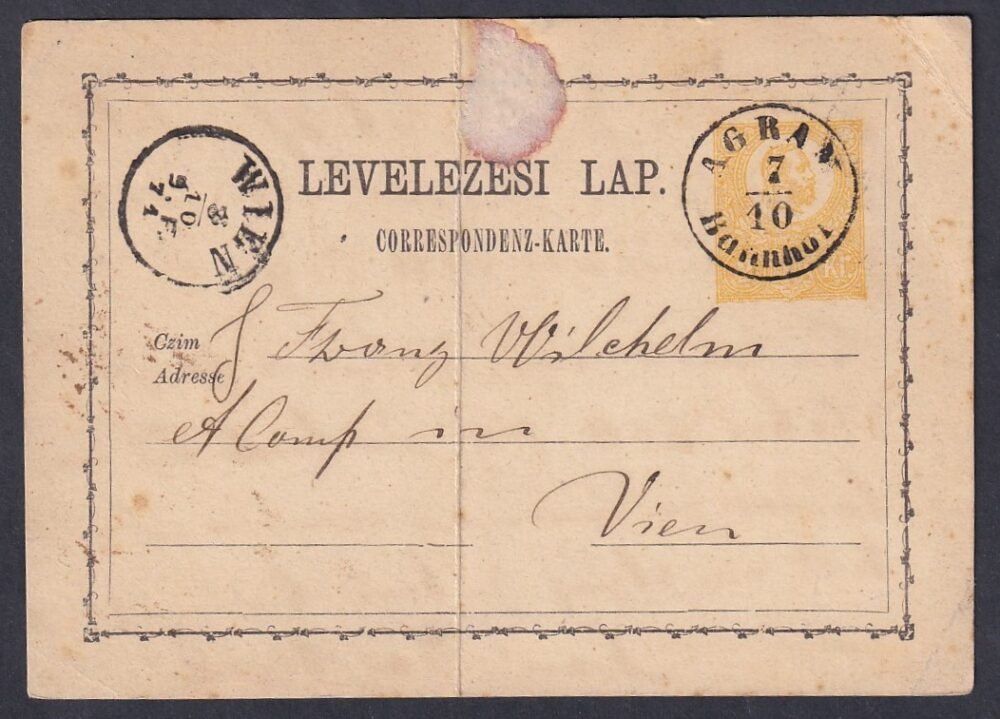 LEVELEZESI LAP.
CORRESPONDENZ-KARTE.
AGRAM
7
10
Bahnhof
Kr.
WIEN
8
10
Czim
Adresse
Franz Wilchelm
& Comp in
Vien